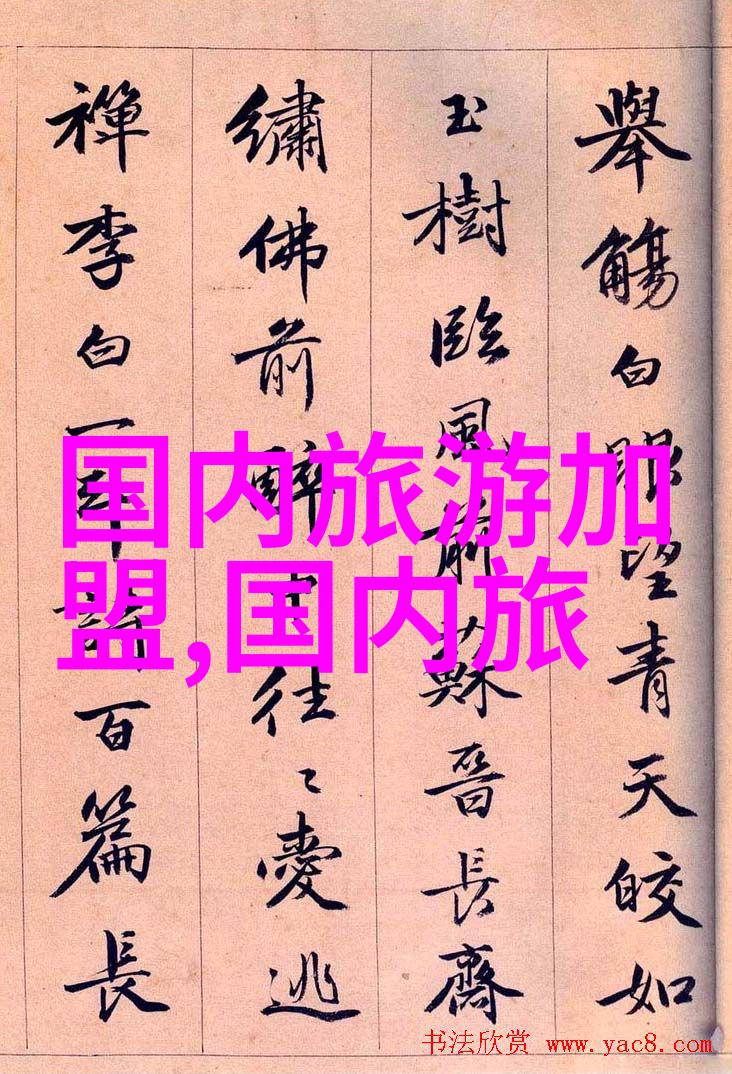 舉觴白眼望青天皎如
玉樹臨風前蘇晉長齋
繡佛前醉中往〻愛逃
禪李白一斗詩百篇長
国内旅游加
盟,国内旅
书法欣赏 www.yac8.com